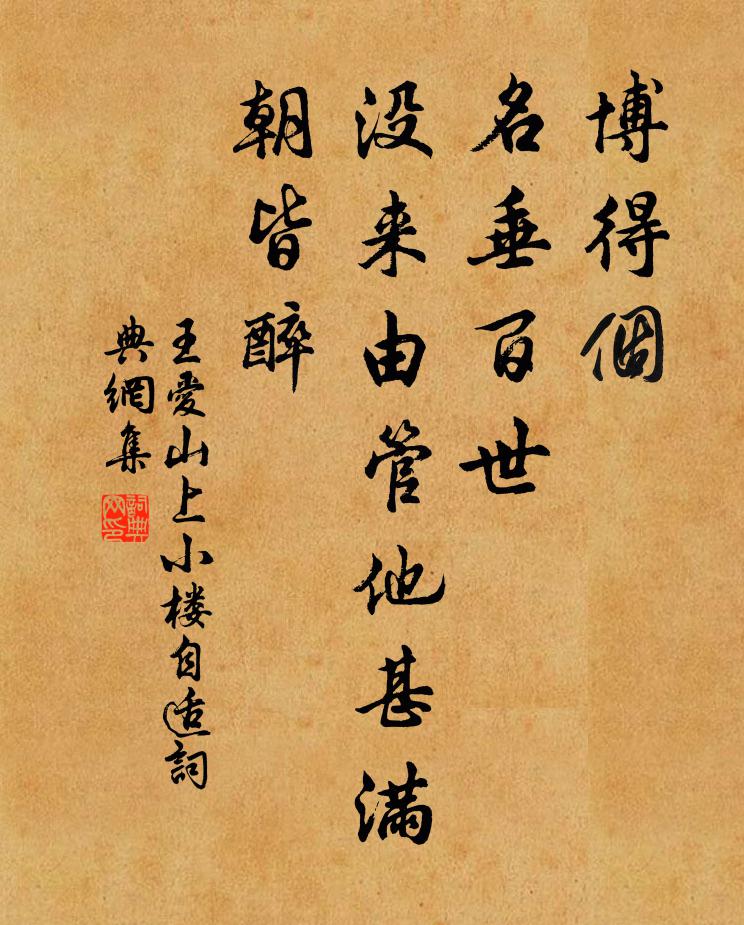 博得個
名垂百世
没来由管他甚满
朝皆醉
王愛山上小楼自适詞
典網集
詞典網印